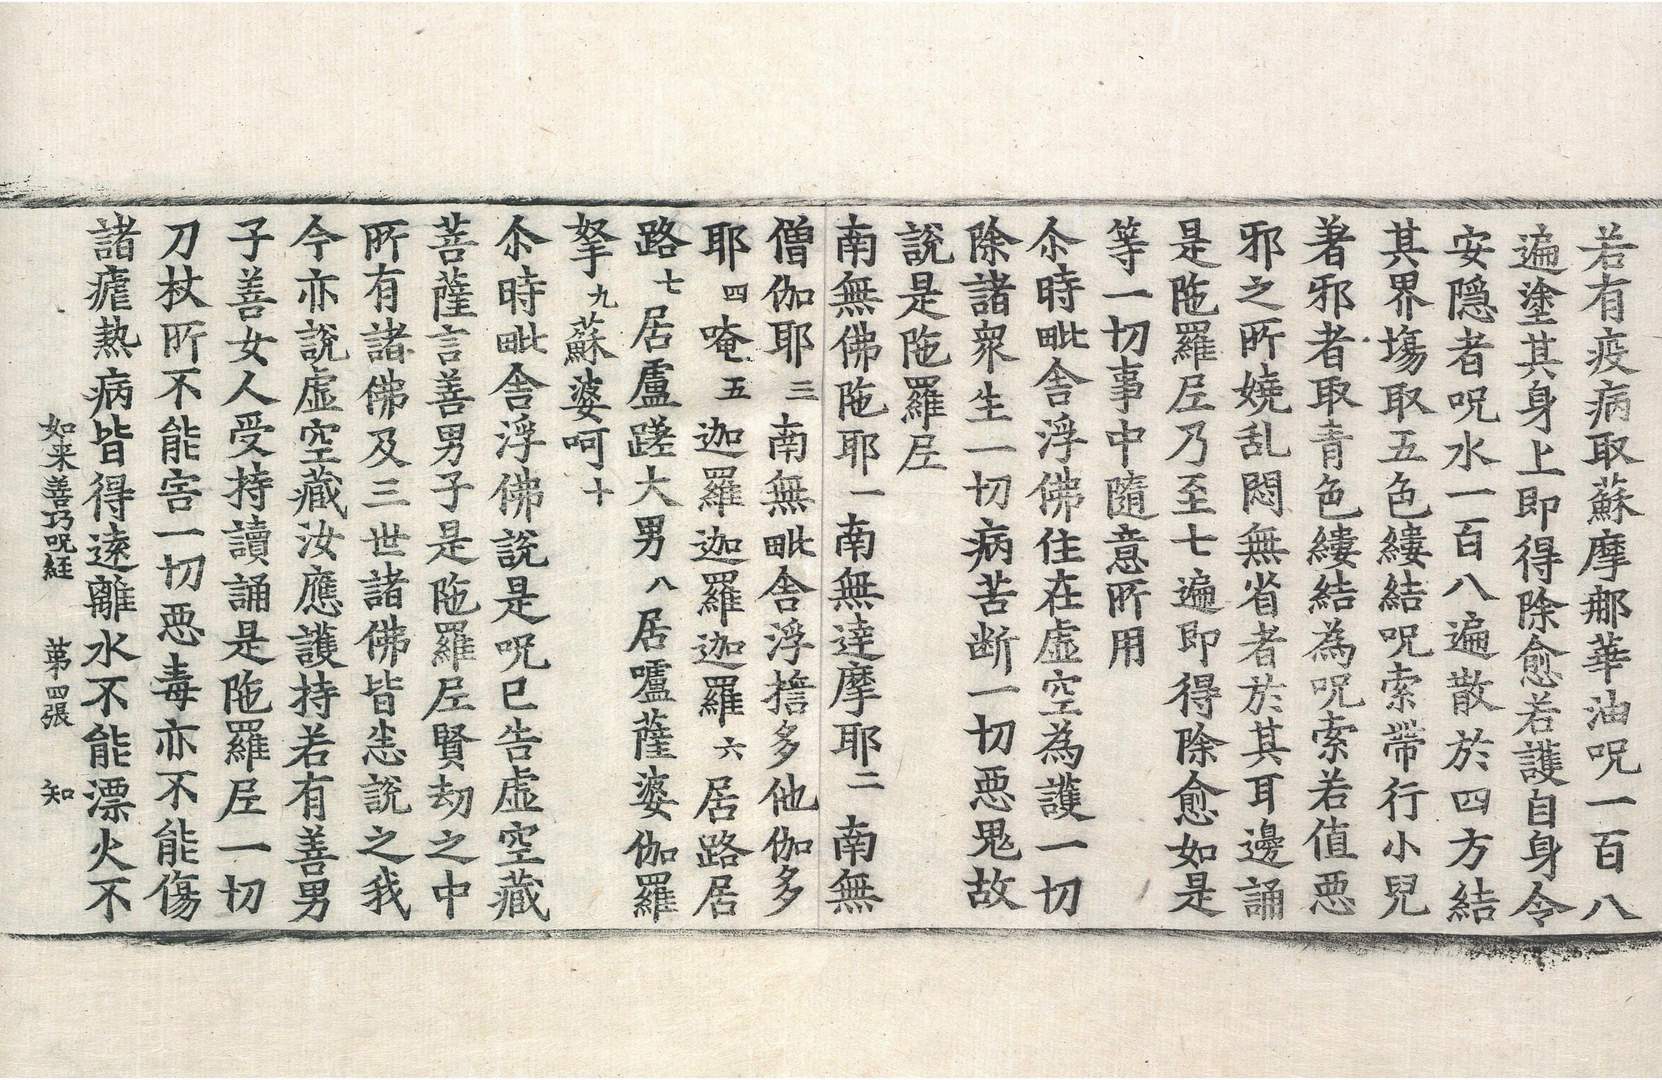 若有疫病取蘇摩那華油呪一百八
遍塗其身上即得除愈若護自身令
安隱者呪水一百八遍散於四方結
其界場取五色縷結呪索帶行小兒
著邪者取青色縷結為呪索若值惡
邪之所嬈乱悶無省者於其耳邊誦
是陁羅尼乃至七遍即得除愈如是
等一切事中隨意所用
尒時毗舍浮佛住在虛空為護一切
除諸衆生一切病苦断一切惡鬼故
說是陁羅尼
南無佛陁耶一南無達摩耶二南無
僧伽耶三南無毗舍浮擔多他伽多
耶四唵五迦羅迦羅迦羅六居路居
路七居盧蹉大男八居嚧薩婆伽羅
拏九蘇婆呵十
尒時毗舍浮佛說是呪已告虛空藏
菩薩言善男子是陁羅尼賢劫之中
所有諸佛及三世諸佛皆悉說之我
今亦說虛空藏汝應護持若有善男
子善女人受持讀誦是陁羅尼一切
刀杖所不能害一切惡毒亦不能傷
諸瘧熱病皆得遠離水不能漂火不
如来善巧呪経 第四張 知